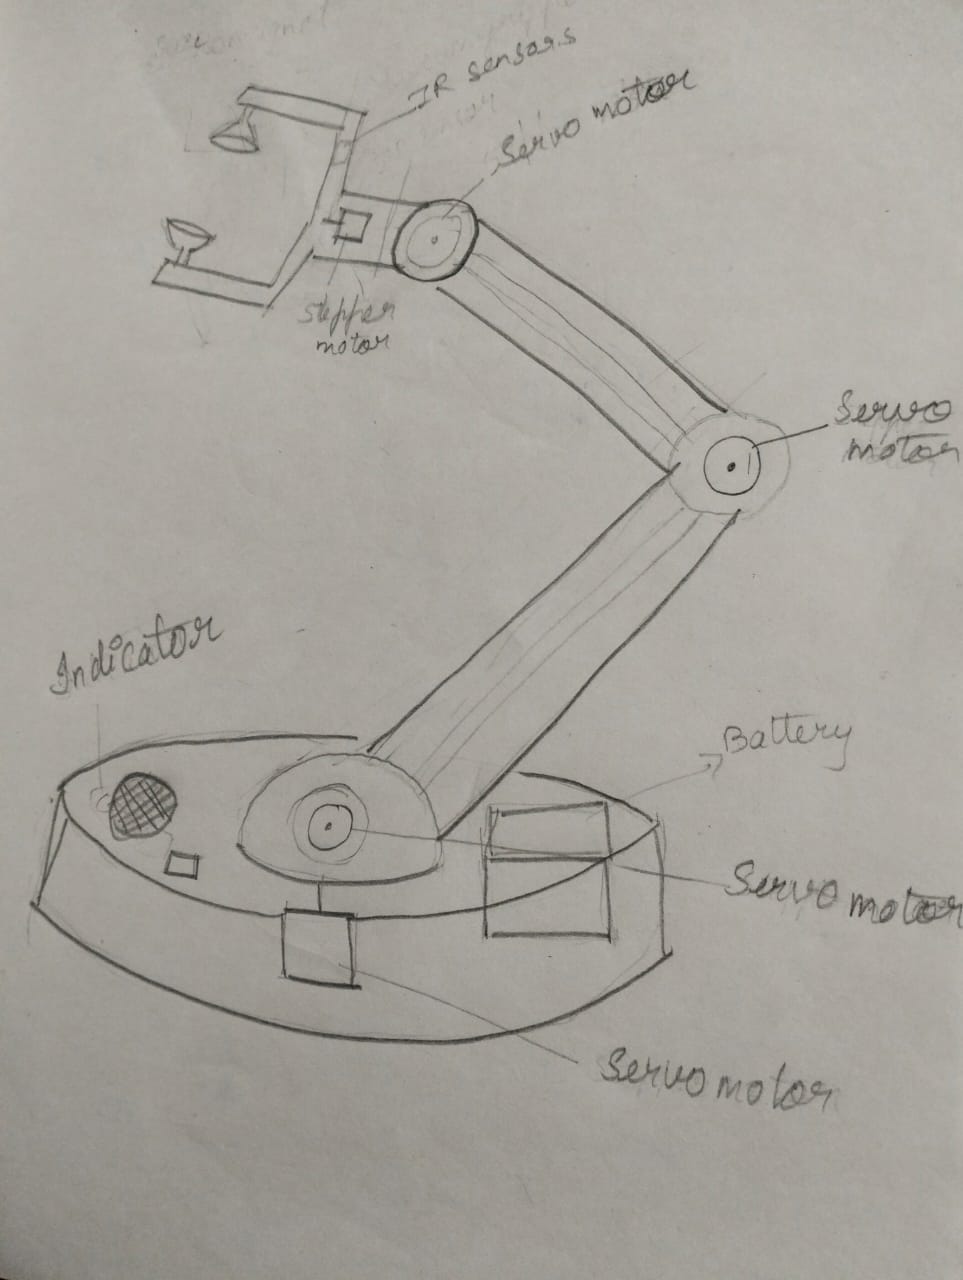 IR sensors
Servo motor
stepper
motor
Servo
motor
Indicator
Battery
Servo motor
Servo motor